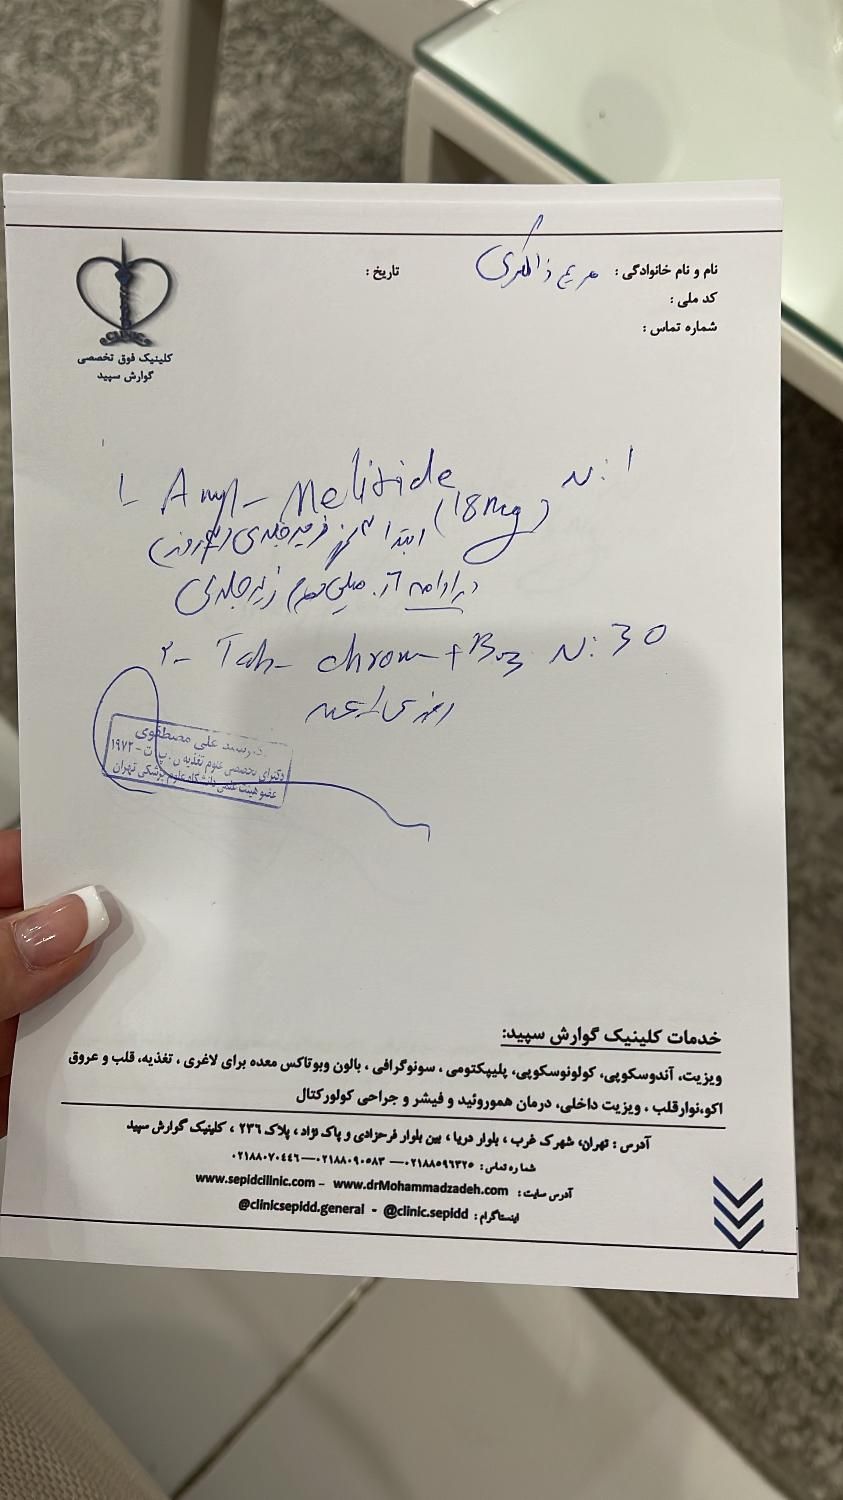 نام و نام خانوادگی : مریم ذاکری
تاریخ :
کد ملی :
شماره تماس :
CLINIC
کلینیک فوق تخصصی
گوارش سپید
1- Amp- Melitide N: 1
(18mg) ابتدا زیر جلدی (روز)
در ادامه زیر جلدی
۲- Tab- chrom + B N: 30
روزی ۱ عدد
دکتر سید علی مصطفوی
دکترای تخصصی علوم تغذیه ن . پ ت - ۱۹۷۲
عضو هیئت علمی دانشگاه علوم پزشکی تهران
خدمات کلینیک گوارش سپید:
ویزیت، آندوسکوپی، کولونوسکوپی، پلیپکتومی ، سونوگرافی ، بالون وبوتاکس معده برای لاغری ، تغذیه، قلب و عروق
اکو،نوارقلب ، ویزیت داخلی، درمان هموروئید و فیشر و جراحی کولورکتال
آدرس : تهران، شهرک غرب ، بلوار دریا ، بین بلوار فرحزادی و پاک نژاد ، پلاک ۲۳۶ ، کلینیک گوارش سپید
شماره تماس : ۰۲۱۸۸۵۹۶۳۲۵ — ۰۲۱۸۸۰۹۰۵۸۳ — ۰۲۱۸۸۰۷۰۴۴۶
آدرس سایت : www.sepidcilinic.com - www.drMohammadzadeh.com
اینستاگرام : @clinicsepidd.general - @clinic.sepidd